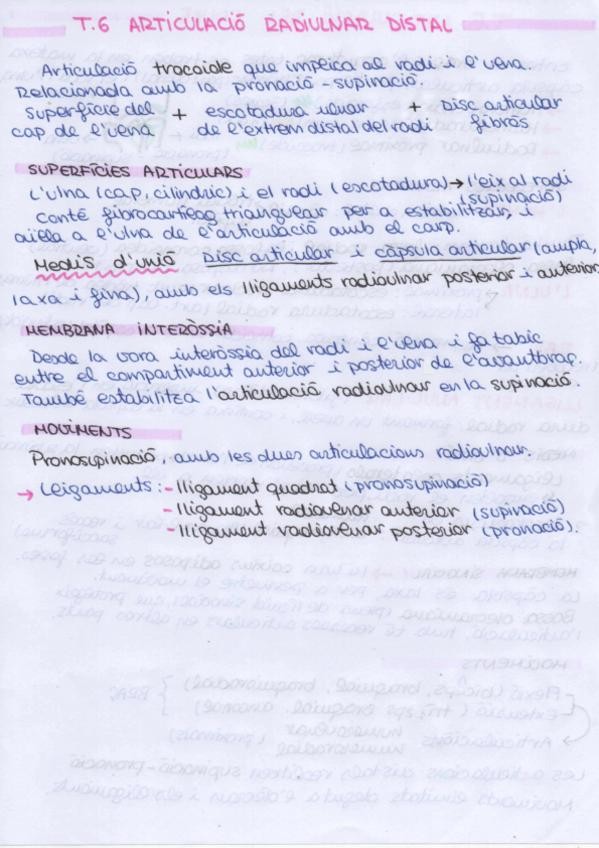 T.6 ARTICULACIÓ RADIULNAR DISTAL
Articulació trocoide que implica al radi i l'ulna.
Relacionada amb la pronació-supinació.
Superfície del + escotadura ulnar + Disc articular
cap de l'ulna de l'extrem distal del radi fibrós
SUPERFÍCIES ARTICULARS
L'ulna (cap, cilíndric) i el radi (escotadura) → l'eix al radi
(supinació)
conté fibrocartílag triangular per a estabilitzar, i
aïlla a l'ulna de l'articulació amb el carp.
Medis d'unió Disc articular i càpsula articular (ampla,
laxa i fina), amb els lligaments radioulnar posterior i anterior
MEMBRANA INTERÒSSIA
Desde la vora interòssia del radi i l'ulna i fa tabic
entre el compartiment anterior i posterior de l'avantbraç.
També estabilitza l'articulació radioulnar en la supinació.
MOVIMENTS
Pronosupinació, amb les dues articulacions radioulnar.
→ Lligaments: - lligament quadrat (pronosupinació)
- lligament radioulnar anterior (supinació)
- lligament radioulnar posterior (pronació).